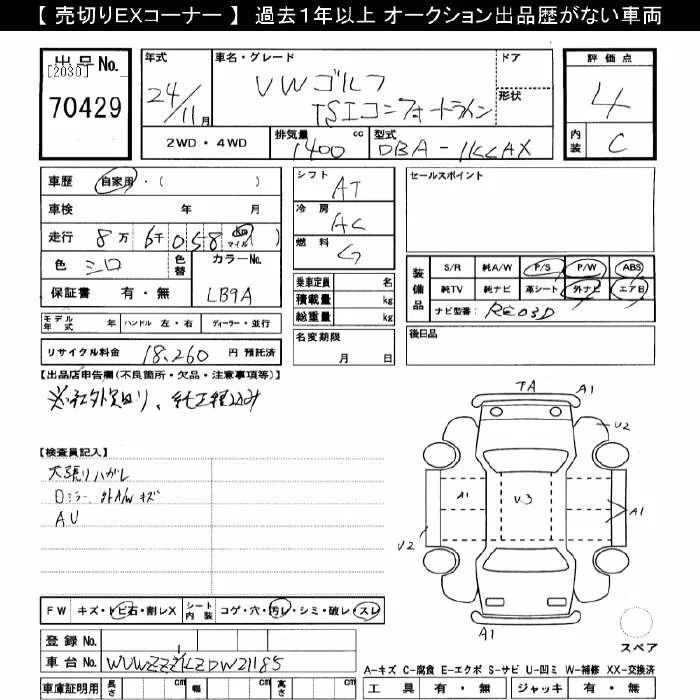 【 売切りEXコーナー 】 過去1年以上 オークション出品歴がない車両
出品 No.
[2030]
70429
年式
24/11月
車名・グレード
VWゴルフ
TSIコンフォートライン
ドア
形状
2WD・4WD
排気量 1400 cc
型式 DBA-1KCAX
評価点
4
内装 C
車歴 自家用・( )
車検 年 月
走行 8万6千058 km マイル
色 シロ
色替
カラーNo. LB9A
保証書 有・無
モデル年式 年 ハンドル 左・右 ディーラー・並行
リサイクル料金 18,260 円 預託済
シフト AT
冷房 AC
燃料 G
乗車定員 名
積載量 kg
総重量 kg
名変期限
月 日
セールスポイント
装備品
S/R 純A/W P/S P/W ABS
純TV 純ナビ 革シート 外ナビ エアB
ナビ型番: RE03D
後日品
【出品店申告欄(不良箇所・欠品・注意事項等)】
【検査員記入】
天張りハガレ
Dミラー、外A/Wキズ
AU
TA
A1
U2
A1
V3
A1
U2
A1
FW キズ・トビ石・割レX
シート内装 コゲ・穴・汚レ・シミ・破レ・スレ
登録 No.
車台 No. WVWZZZ1KZDW21185
車庫証明用 長さ cm 幅 cm 高さ cm
スペア
A-キズ C-腐食 E-エクボ S-サビ U-凹ミ W-補修 XX-交換済
工具 有・無 ジャッキ 有・無